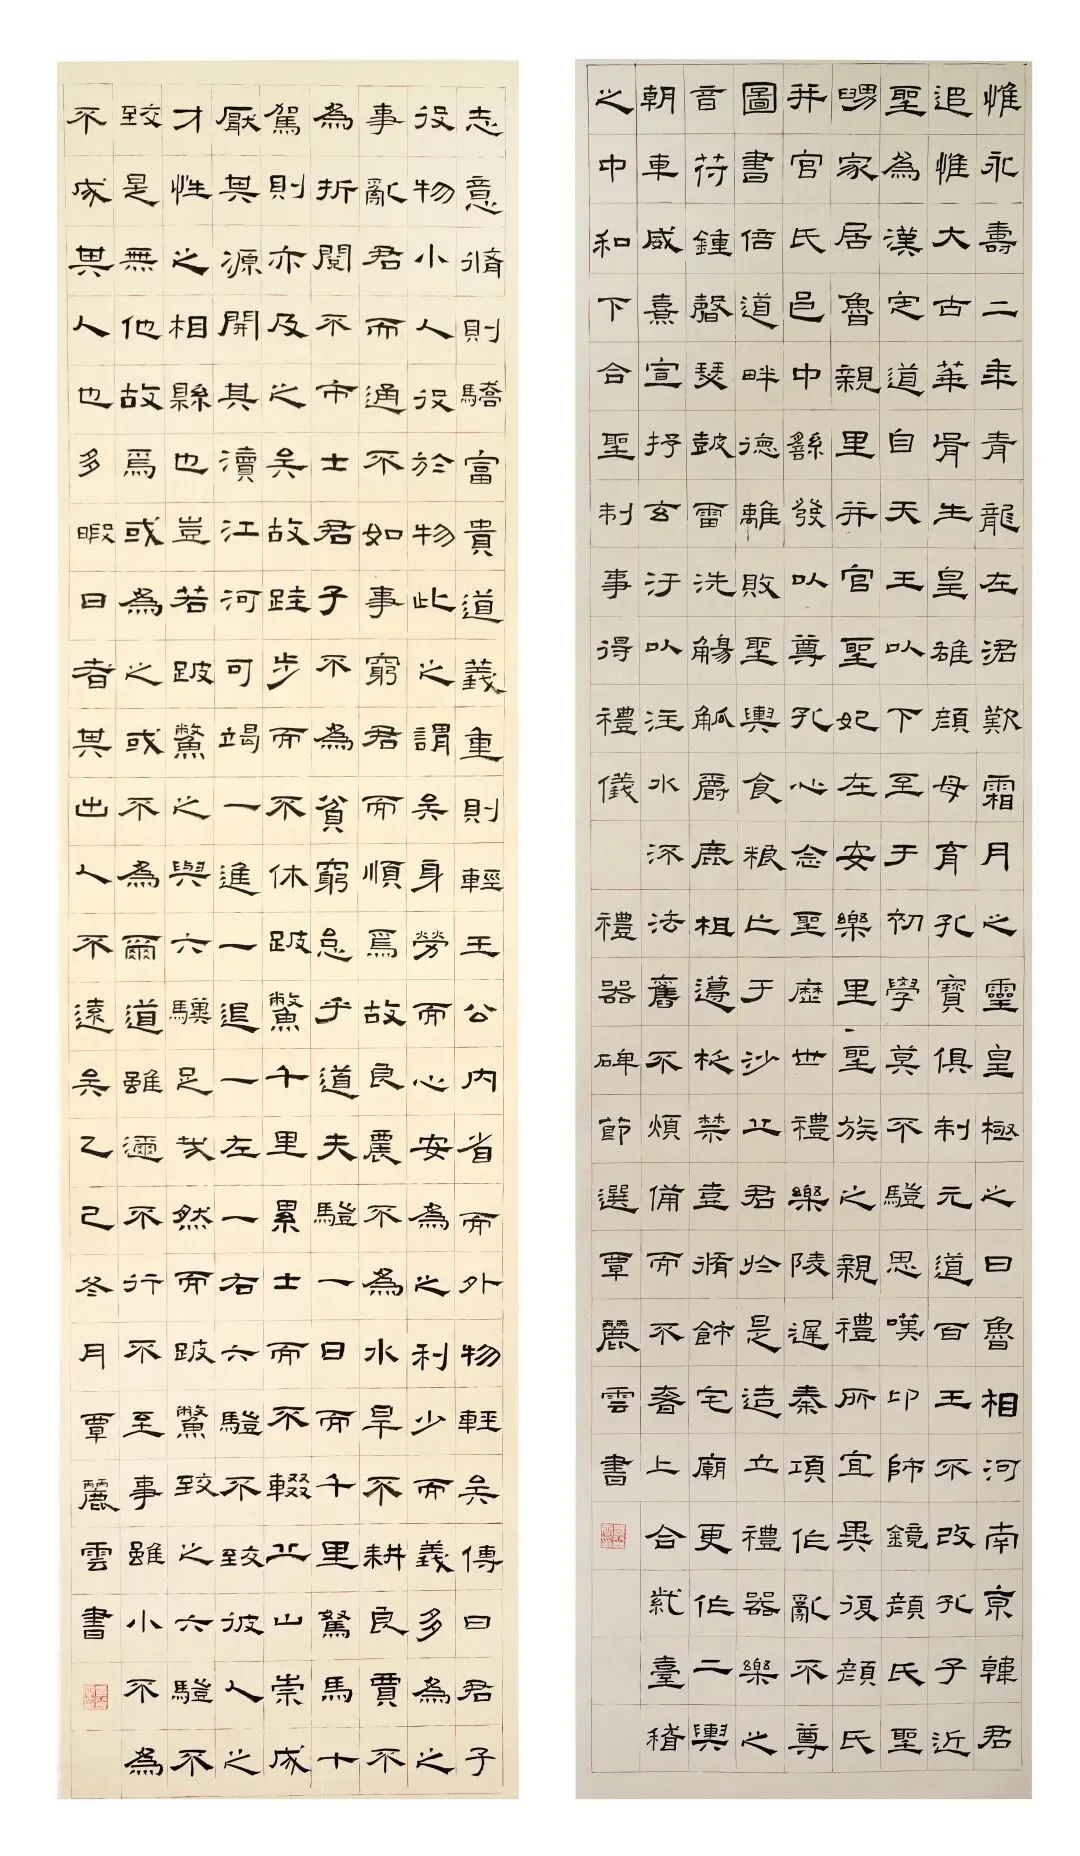 惟永壽二年青龍在涒歎霜月之靈皇極之日魯相河南京韓君
追惟大古華胥生皇雄顏母育孔寶俱制元道百王不改孔子近
聖為漢定道自天王以下至于初學莫不驥思嘆卬師鏡顏氏聖
舅家居魯親里并官聖妃在安樂里聖族之親禮所宜異復顏氏
并官氏邑中繇發以尊孔心念聖歷世禮樂陵遲秦項作亂不尊
圖書倍道畔德離敗聖輿食糧亡于沙丘君於是造立禮器樂之
音苻鍾磬瑟鼓雷洗觴觚爵鹿柤籩柉禁壺脩飾宅廟更作二輿
朝車威熹宣抒玄汙以注水流法舊不煩備而不奢上合紫臺稽
之中和下合聖制事得禮儀 禮器碑節選覃麗雲書
志意脩則驕富貴道義重則輕王公內省而外物輕矣傳曰君子
役物小人役於物此之謂矣身勞而心安為之利少而義多為之
事亂君而通不如事窮君而順焉故良農不為水旱不耕良賈不
為折閱不市士君子不為貧窮怠乎道夫驥一日而千里駑馬十
駕則亦及之矣故跬步而不休跛鱉千里累土而不輟丘山崇成
厭其源開其瀆江河可竭一進一退一左一右六驥不致彼人之
才性之相縣也豈若跛鱉之與六驥足哉然而跛鱉致之六驥不
致是無他故焉或為之或不為爾道雖邇不行不至事雖小不為
不成其人也多暇日者其出人不遠矣乙巳冬月覃麗雲書